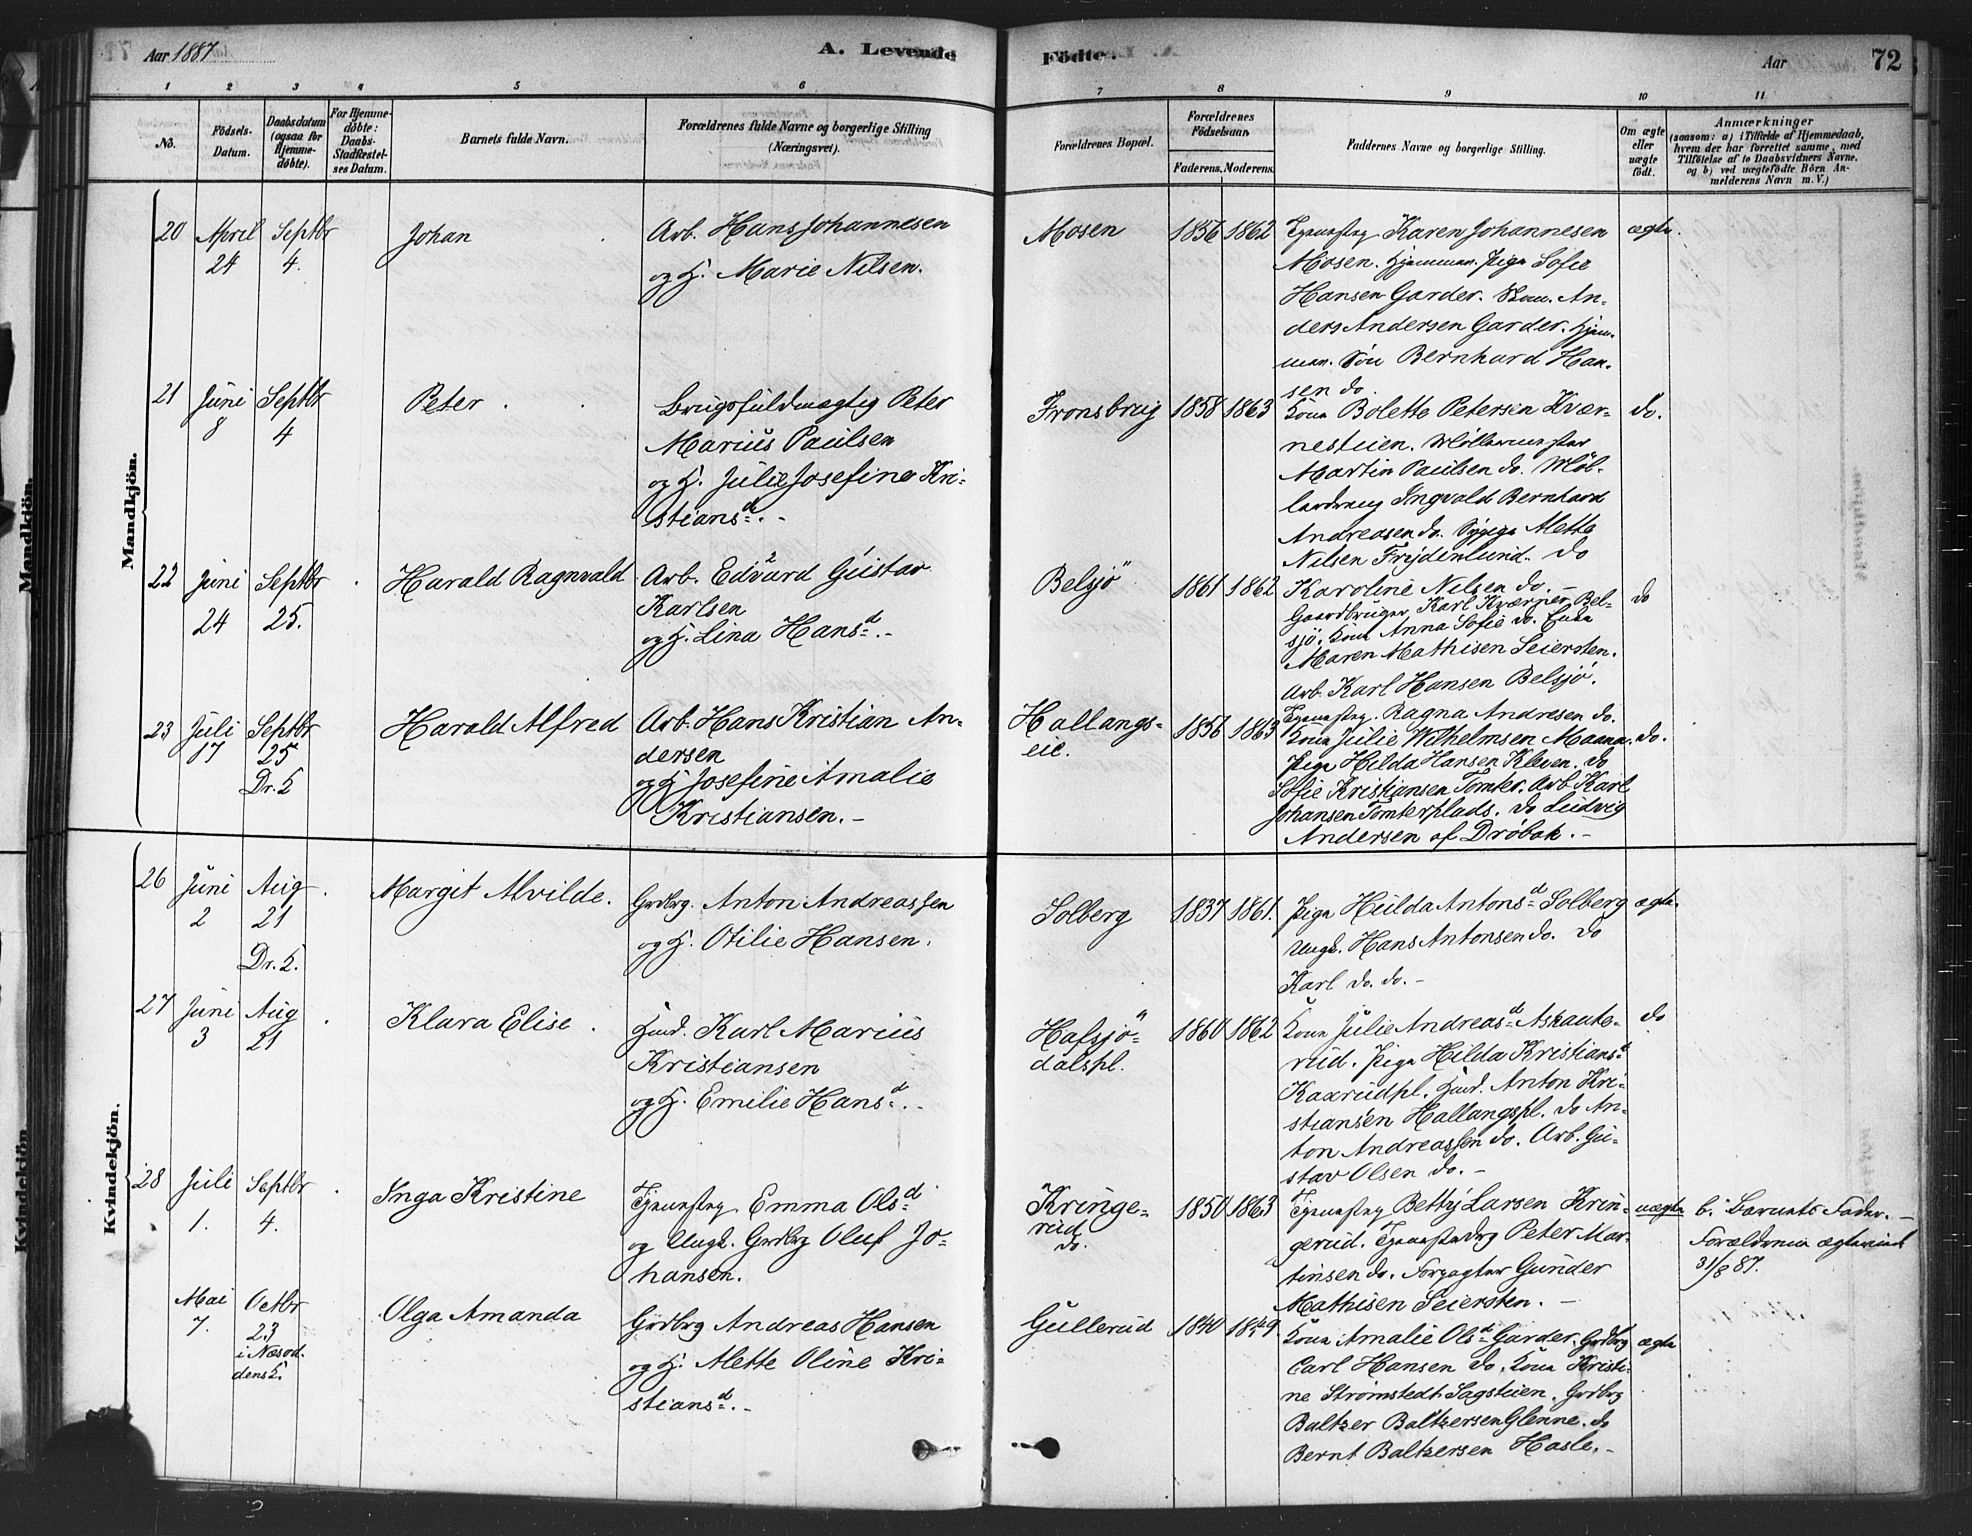 Aar 1887
A. Levende
Födte.
Aar
72
1 2 3 4 5 6 7 8 9 10 11
No.
Födsels-
Datum.
Daabsdatum
(ogsaa for
Hjemme-
döbte).
For Hjemme-
döbte:
Daabs-
Stadfæstel-
ses Datum.
Barnets fulde Navn.
Forældrenes fulde Navne og borgerlige Stilling
(Næringsvei).
Forældrenes Bopæl.
Forældrenes
Födselsaar
Faderens. Moderens.
Faddernes Navne og borgerlige Stilling.
Om ægte
eller
uægte
födt.
Anmærkninger
(saasom: a) i Tilfælde af Hjemmedaab,
hvem der har forrettet samme, med
Tilföielse af to Daabsvidners Navne.
og b) ved uægtefödte Börn An-
melderens Navn m. V.)
Mandkjön.
20 April 24 Septbr 4. Johan
Arb. Hans Johannesen
og H. Marie Nilsen.
Mosen 1856 1862
Tjenestpg Karen Johannesen
Mosen. Hjemmev. Pige Sofie
Hansen Garder. Kone An-
ders Andersen Garder. Hjem-
mev. Sön Bernhard Han-
sen do.
ægte.
21 Juni 8 Septbr 4 Peter
Brugsfuldmægtig Peter
Marius Paulsen
og H. Julie Josefine Kri-
stiansd. -
Fronsbrug 1858 1863
Kone Bolette Petersen Kvær-
nestuen. Møllermester
Martin Paulsen do. Möl-
lerdreng Ingvald Bernhard
Andreasen do. Sypige Alette
Nilsen Frydenlund. do
Karoline Nilsen do. -
do.
22 Juni 24 Septbr 25. Harald Ragnvald
Arb. Edvard Gustav
Karlsen
og H. Lina Hansd. -
Belsjö 1861 1862
Gaardbruger Karl Kværner Bel-
sjö. Kone Anna Sofie do. Enke
Maren Mathisen Seiersten.
Arb. Karl Hansen Belsjö.
Tjenestpg. Ragna Andresen do.
do
23 Juli 17 Septbr 25 Dr. K Harald Alfred
Arb. Hans Kristian An-
dersen
og H Josefine Amalie
Kristiansen. -
Hallangs-
eie.
1856 1863
Kone Julie Wilhelmsen Maana.
Pige Hilda Hansen Kleven. do
Sofie Kristiansen Tomter. Arb Karl
Johansen Tomterplads. do Ludvig
Andersen af Dröbak. -
do.
Kvindekjön.
26 Juni 2 Aug 21 Dr. K. Margit Alvilde.
Grdbrg. Anton Andreassen
og H. Otilie Hansen.
Solberg 1837 1861.
Pige Hulda Antonsd. Solberg
Ungk. Hans Antonsen do. do
Karl do. do. -
ægte.
27 Juni 3 Aug 21 Klara Elise.
Husm. Karl Marius
Kristiansen
og H. Emilie Hansd. -
Hafsjö-
dalspl.
1860 1862
Kone Julie Andreasd. Askaute-
rud. Pige Hilda Kristiansd
Kaxrudpl. Husm. Anton Kri-
stiansen Hallangspl. do An-
ton Andreassen do. Arb. Gu-
stav Olsen do. -
do
28 Juli 1. Septbr 4. Inga Kristine
Tjenestpg. Emma Olsd.
og Ungk. Grdbrg Oluf Jo-
hansen.
Kringe-
rud
do.
1850 1863
Tjenestpg Betty Larsen Krin-
gerud. Tjenestedrg Peter Mar-
tinsen do. Forpagter Gunder
Mathisen Seiersten. -
uægte
b. Barnets Fader. -
Forældrene ægteviet
31/8 87.
Mai 7. Octbr 23 i Næsod-
dens K. Olga Amanda
Grdbrg Andreas Hansen
og H. Alette Oline Kri-
stiansd. -
Gullerud 1840 1849.
Kone Amalie Olsd. Garder. Grdbrg
Carl Hansen do. Kone Kristi-
ne Strömstedt Sagstuen. Grdbrg
Baltzer Baltzersen Glenne. do
Bernt Baltzersen Hasle. -
ægte